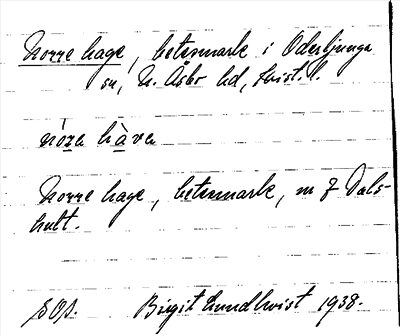 Norre hage, betesmark i Oderljunga
sn, N. Åsbo hd, Krist. l.
nòra hàva
Norre hage, betesmark, m f Dals-
hult.
Birgit Lundkvist 1938.